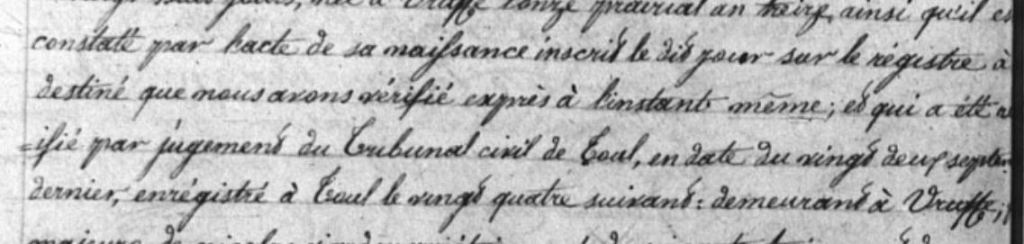 jours, née à Vruffe l'onze prairial an treize, ainsi qu'il es
constaté par l'acte de sa naissance inscrit le dit jour sur le régistre à
destiné que nous avons vérifié exprès à l'instant même; et qui a été re
=ifié par jugement du Tribunal civil de Toul, en date du vingt deux septem
dernier, enrégistré à Toul le vingt quatre suivant: demeurant à Vruffe;
majeure de